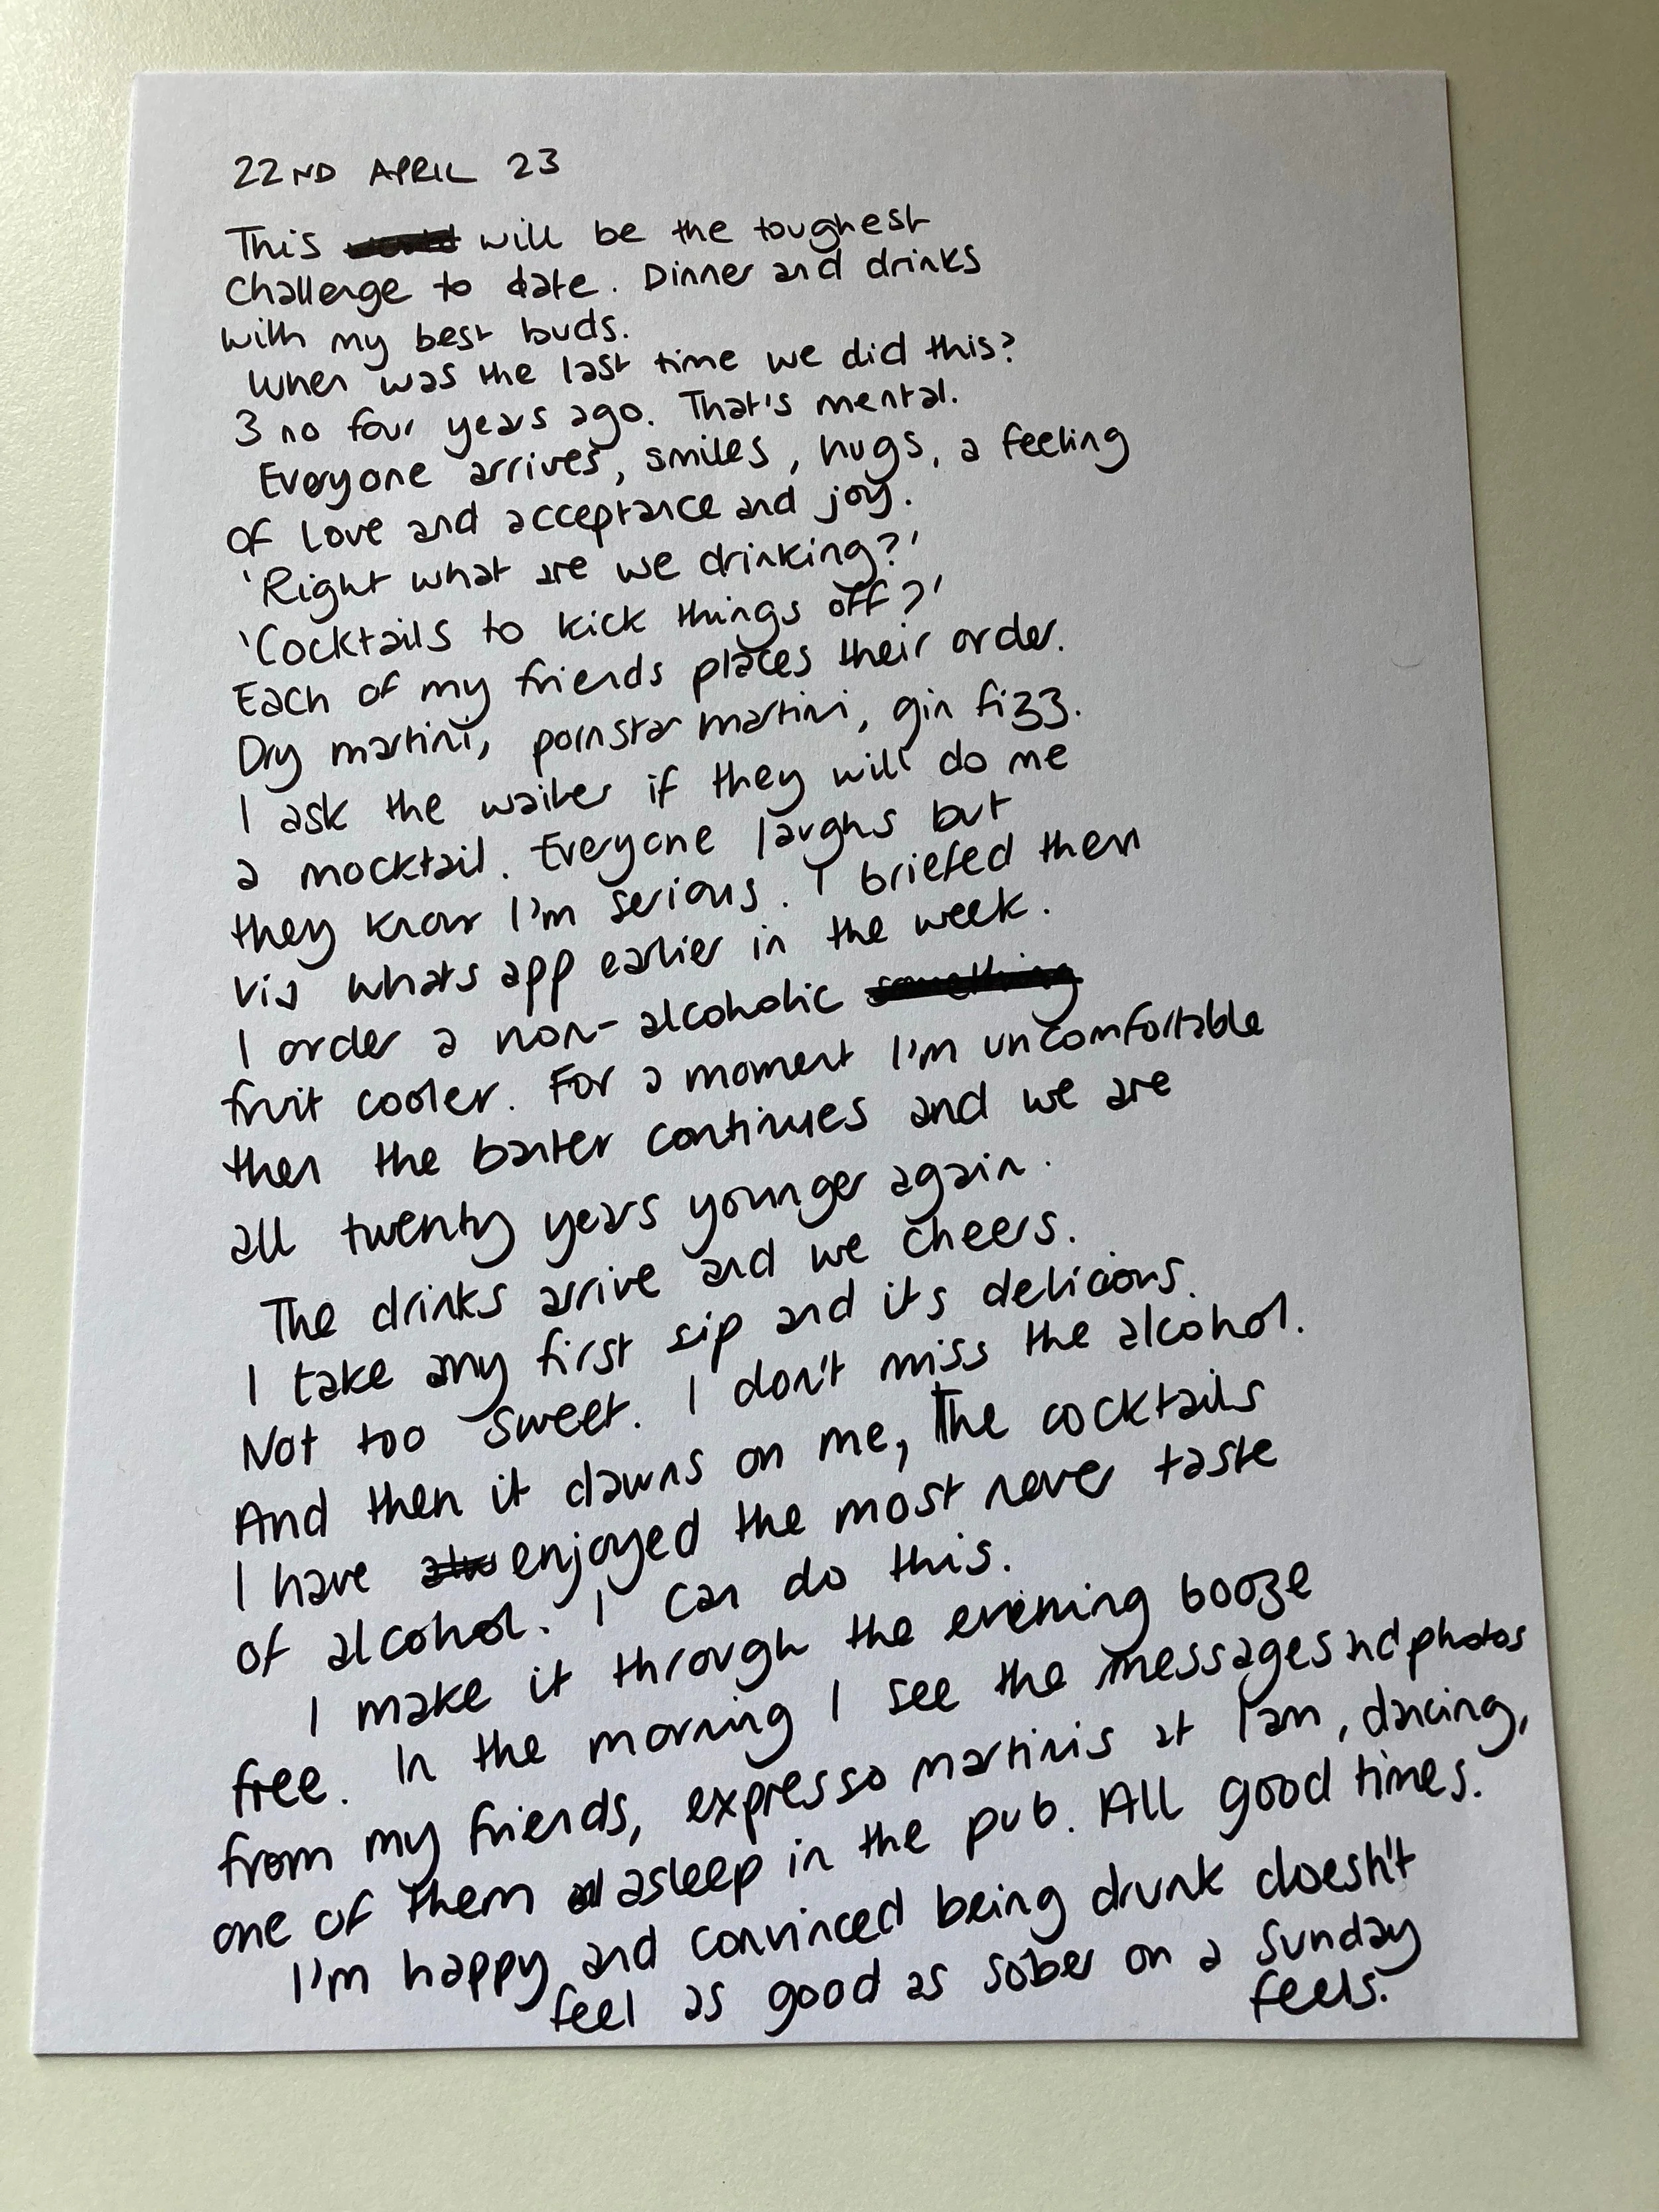 22ND APRIL 23
This will be the toughest
Challenge to date. Dinner and drinks
with my best buds.
When was the last time we did this?
3 no four years ago. That's mental.
Everyone arrives, smiles, hugs, a feeling
of love and acceptance and joy.
'Right what are we drinking?'
'Cocktails to kick things off?'
Each of my friends places their order.
Dry martini, pornstar martini, gin fizz.
I ask the waiter if they will do me
a mocktail. Everyone laughs but
they know I'm serious. I briefed them
via whats app earlier in the week.
I order a non-alcoholic something
fruit cooler. For a moment I'm uncomfortable
then the banter continues and we are
all twenty years younger again.
The drinks arrive and we cheers.
I take my first sip and its delicious.
Not too sweet. I don't miss the alcohol.
And then it dawns on me, The cocktails
I have enjoyed the most never taste
of alcohol. I can do this.
I make it through the evening booze
free. In the morning I see the messages nd photos
from my friends, expresso martinis at 1am, dancing,
one of them asleep in the pub. All good times.
I'm happy and convinced being drunk doesn't
feel as good as sober on a Sunday
feels.